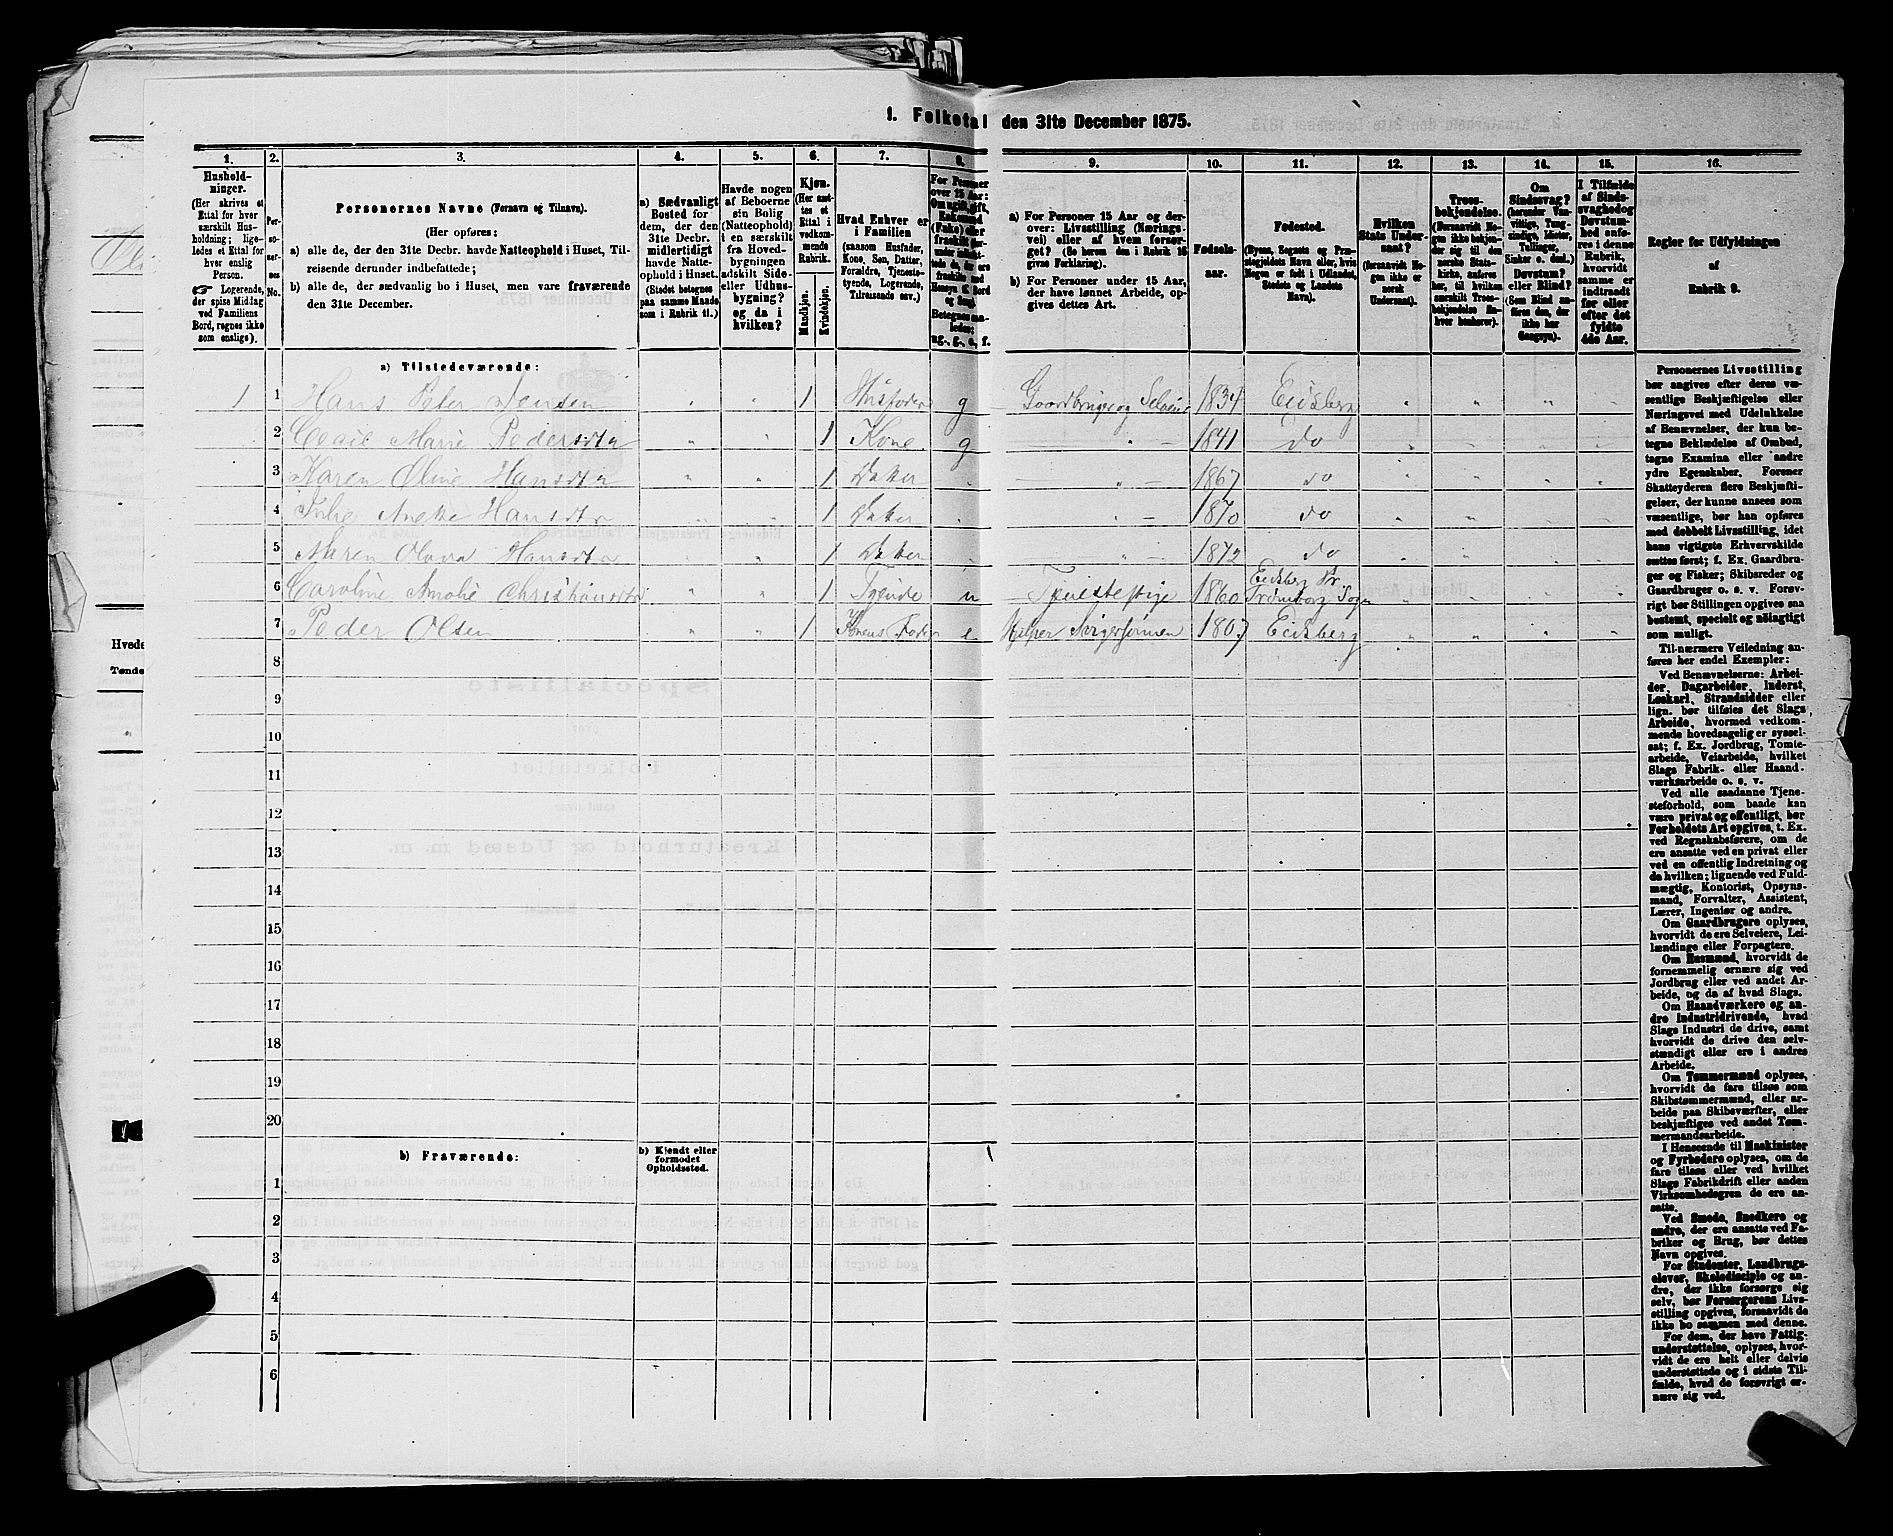 1. Folketal den 31te December 1875.
1.
2.
3.
4.
5.
6.
7.
8.
9.
10.
11.
12.
13.
14.
15.
16.
Hushold-
ninger.
(Her skrives et
Ettal for hver
særskilt Hus-
holdning; lige-
ledes et Ettal for
hver enslig
Person.
Logerende,
der spise Middag
ved Familiens
Bord, regnes ikke
som enslige).
Per-
so-
ner-
nes
No.
Personernes Navne (Fornavn og Tilnavn).
(Her opføres:
a) alle de, der den 31te Decbr. havde Natteophold i Huset, Til-
reisende derunder indbefattede;
b) alle de, der sædvanlig bo i Huset, men vare fraværende
den 31te December.
a) Sædvanligt
Bosted for
dem, der den
31te Decbr.
midlertidigt
havde Natte-
ophold i Huset.
(Stedet betegnes
paa samme Maade
som i Rubrik 11.)
Havde nogen
af Beboerne
sin Bolig
(Natteophold)
i en særskilt
fra Hoved-
bygningen
adskilt Side-
eller Udhus-
bygning?
og da i
hvilken?
Kjøn.
(Her sæt-
tes et
Ettal i
vedkom-
mende
Rubrik.
Mandkjøn.
Kvindekjøn.
Hvad Enhver er
i Familien
(saasom Husfader,
Kone, Søn, Datter,
Forældre, Tjeneste-
tyende, Logerende,
Tilreisende osv.)
For Personer
over 15 Aar:
ug., g., e, f.
a) For Personer 15 Aar og der-
over: Livsstilling (Nærings-
vei) eller af hvem forsør-
get? (Se herom den i Rubrik 16
givne Forklaring).
b) For Personer under 15 Aar,
der have lønnet Arbeide, op-
gives dettes Art.
Fødsels-
aar.
Fødested.
(Byens, Sognets og Præ-
stegjeldets Navn eller, hvis
Nogen er født i Udlandet,
Stedets og Landets
Navn.)
Hvilken
Stats Under-
saat?
(forsaavidt No-
gen ikke er
norsk
Undersaat).
Troes-
bekjendelse.
(Forsaavidt No-
gen ikke bekjen-
der sig til den
norske Stats-
kirke, anføres
her, til hvilken
særskilt Troes-
bekjendelse En-
hver henhører).
Om
Sindssvag?
(herunder Van-
vittige, Tung-
sindige, Idioter,
Tullinger,
Sinker o. desl.)
Døvstum?
eller Blind?
(Som Blind an-
føres den, der
ikke har
Gangsyn).
I Tilfælde
af Sinds-
svaghed og
Døvstum-
hed anfø-
res i denne
Rubrik,
hvorvidt
samme er
indtraadt
før eller
efter det
fyldte
4de Aar.
Regler for Udfyldningen
af
Rubrik 9.
a) Tilstedeværende:
1 1 Hans Peter Jensen " " 1 Husfader g Gaardbruger og Selveier 1834 Eidsberg
2 Marie Pedersdtr " " 1 Kone g " 1841 do
3 Karen Oline Hansdtr " " 1 Datter " 1867 do
4 Julie Hansdtr " " 1 Datter " 1870 do
5 Maren Hansdtr " " 1 Datter " 1872 do
6 Caroline Amalie Christiansdtr " " 1 Tyende u 1860 Eidsberg Pr. Trømborg Sogn
7 Peder Olsen " " 1 Konens Fader e Hjelper Svigersønnen 1807 Eidsberg
8
9
10
11
12
13
14
15
16
17
18
19
20
b) Fraværende:
b) Kjendt eller
formodet
Opholdssted.
1
2
3
4
5
6
Personernes Livsstilling
bør angives efter deres væ-
sentlige Beskjæftigelse eller
Næringsvei med Udelukkelse
af Benævnelser, der kun be-
tegne Beklædelse af Ombud,
tagne Examina eller andre
ydre Egenskaber. Forener
Skatteyderen flere Beskjæfti-
gelser, der kunne ansees som
væsentlige, bør han opføres
med dobbelt Livsstilling, idet
hans vigtigste Erhvervskilde
sættes først; f. Ex. Gaardbru-
ger og Fisker; Skibsreder og
Gaardbruger o. s. v. Forøv-
rigt bør Stillingen opgives saa
bestemt, specielt og nøiagtigt
som muligt.
Til nærmere Veiledning an-
føres her endel Exempler:
Ved Benævnelserne: Arbei-
der, Dagarbeider, Inderst,
Løskarl, Strandsidder eller
lign. bør tilføies det Slags
Arbeide, hvormed vedkom-
mende hovedsagelig er syssel-
sat; f. Ex. Jordbrug, Tomte-
arbeide, Veiarbeide, hvilket
Slags Fabrik- eller Haand-
værksarbeide o. s. v.
Ved alle saadanne Tjene-
steforhold, som baade kan
være privat og offentligt, bør
Forholdets Art opgives, t. Ex.
ved Regnskabsførere, om de
ere ansatte ved en privat eller
ved en offentlig Indretning og
da hvilken; lignende ved Fuld-
mægtig, Kontorist, Opsyns-
mand, Forvalter, Assistent,
Lærer, Ingeniør og andre.
Om Gaardbrugere oplyses,
hvorvidt de ere Selveiere, Lei-
lændinge eller Forpagtere.
Om Husmænd, hvorvidt de
fornemmelig ernære sig ved
Jordbrug eller ved andet Ar-
beide, og da af hvad Slags.
Om Haandværkere og an-
dre Industridrivende, hvad
Slags Industri de drive, samt
hvorvidt de drive den selv-
stændigt eller ere i andres
Arbeide.
Om Tømmermænd oplyses,
hvorvidt de fare tilsøs som
Skibstømmermænd, eller ar-
beide paa Skibsværfter, eller
beskjæftiges ved andet Tøm-
mermandsarbeide.
I Henseende til Maskinister
og Fyrbødere oplyses, om de
fare tilsøs eller ved hvilket
Slags Fabrikdrift eller anden
Virksomhedsgren de ere an-
satte.
Ved Smede, Snedkere og
andre, der ere ansatte ved Fa-
briker og Brug, bør dettes
Navn opgives.
For Studenter, Landbrugs-
elever, Skoledisciple og an-
dre, der ikke forsørge sig
selv, bør Forsørgerens Livs-
stilling opgives, forsaavidt de
ikke bo sammen med denne.
For dem, der have Fattig-
understøttelse, oplyses, hvor-
vidt de ere helt eller delvis
understøttede og i sidste Til-
fælde, hvad de forøvrigt er-
nære sig ved.
Hvede
Tønde